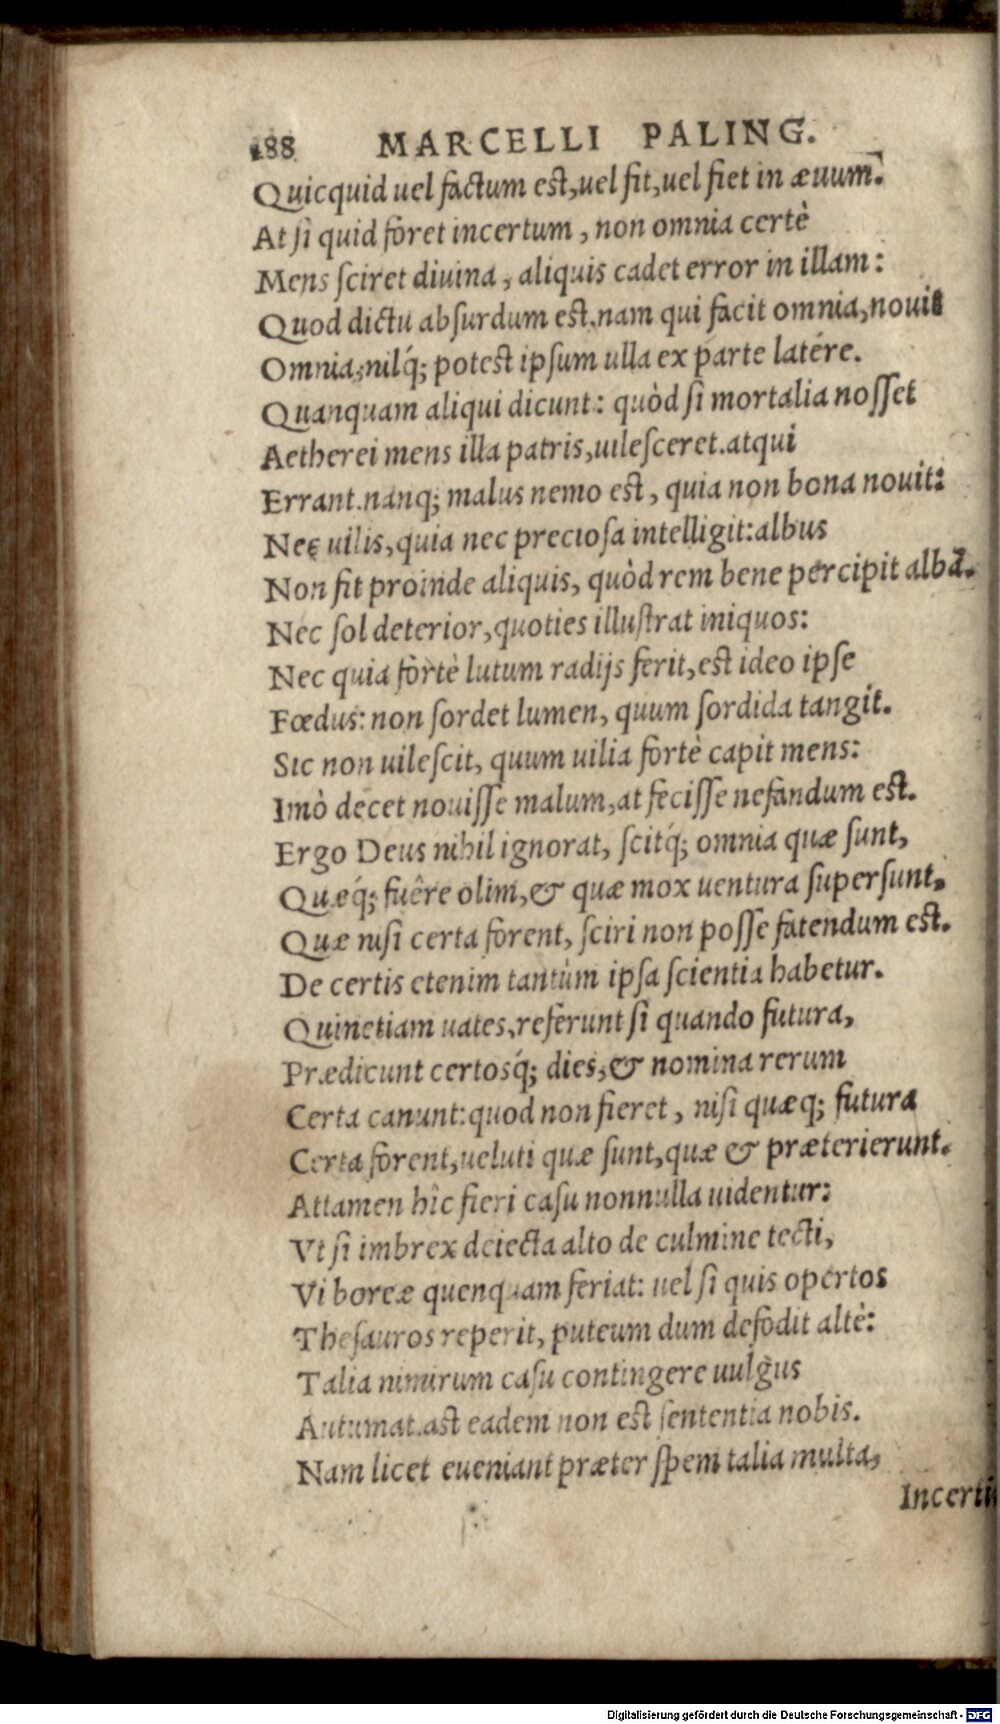 188 MARCELLI PALING.
Quicquid uel factum est, uel fit, uel fiet in æuum.
At ſi quid foret incertum, non omnia certè
Mens ſciret diuina, aliquis cadet error in illam:
Quod dictu abſurdum est. nam qui facit omnia, nouit
Omnia, nilq́; potest ipſum ulla ex parte latére.
Quanquam aliqui dicunt: quòd ſi mortalia noſſet
Aetherei mens illa patris, uileſceret. atqui
Errant. nanq; malus nemo est, quia non bona nouit:
Nec uilis, quia nec precioſa intelligit: albus
Non fit proinde aliquis, quòd rem bene percipit albā.
Nec ſol deterior, quoties illuſtrat iniquos:
Nec quia fortè lutum radijs ferit, est ideo ipſe
Fœdus: non ſordet lumen, quum ſordida tangit.
Sic non uileſcit, quum uilia fortè capit mens:
Imò decet nouiſſe malum, at feciſſe nefandum est.
Ergo Deus nihil ignorat, ſcitq́; omnia quæ ſunt,
Quæq́; fuêre olim, & quæ mox uentura ſuperſunt,
Quæ niſi certa forent, ſciri non poſſe fatendum est.
De certis etenim tantùm ipſa ſcientia habetur.
Quinetiam uates, referunt ſi quando futura,
Prædicunt certosq́; dies, & nomina rerum
Certa canunt: quod non fieret, niſi quæq; futura
Certa forent, ueluti quæ ſunt, quæ & præterierunt.
Attamen hîc fieri caſu nonnulla uidentur:
Vt ſi imbrex deiecta alto de culmine tecti,
Vi boreæ quenquam feriat: uel ſi quis opertos
Theſauros reperit, puteum dum defodit altè:
Talia nimirum caſu contingere uulgus
Autumat. ast eadem non est ſententia nobis.
Nam licet eueniant præter ſpem talia multa,
Incerti
Digitalisierung gefördert durch die Deutsche Forschungsgemeinschaft - DFG